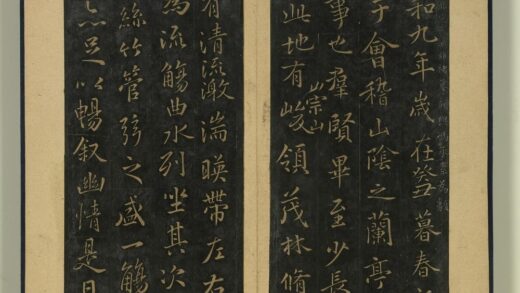 和九年歲在癸丑暮春初
于會稽山陰之蘭亭
事也羣賢畢至少長
此地有崇山峻領茂林脩
有清流激湍暎帶左右
為流觴曲水列坐其次
絲竹管弦之盛一觴
亦足以暢叙幽情是日